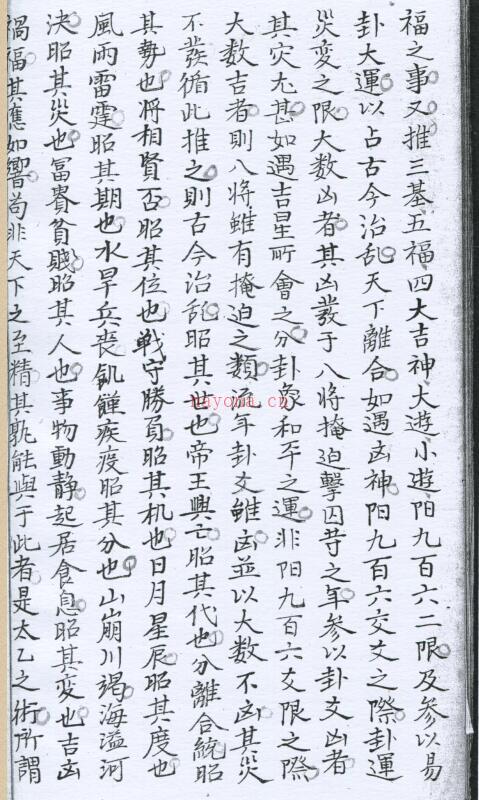 福之事又推三基五福四大吉神大遊小遊阳九百六二限及參以易
卦大運以占古今治乱天下離合如遇凶神阳九百六交爻之際卦運
災变之限大数凶者其凶發于八將掩迫擊囚等之年參以卦爻凶者
其灾尤甚如遇吉星所會之分卦象和平之運非阳九百六爻限之際
大数吉者則八將雖有掩迫之類流年卦爻雖凶並以大数不凶其災
不發循此推之則古今治乱昭其世也帝王興亡昭其代也分離合統昭
其勢也将相賢否昭其位也戰守勝負昭其机也日月星辰昭其度也
風雨雷霆昭其期也水旱兵丧飢饉疾疫昭其分也山崩川竭海溢河
决昭其災也冨貴貧賤昭其人也事物動静起居食息昭其変也吉凶
禍福其應如響苟非天下之至精其孰能與于此者是太乙之術所謂
nayona.cn